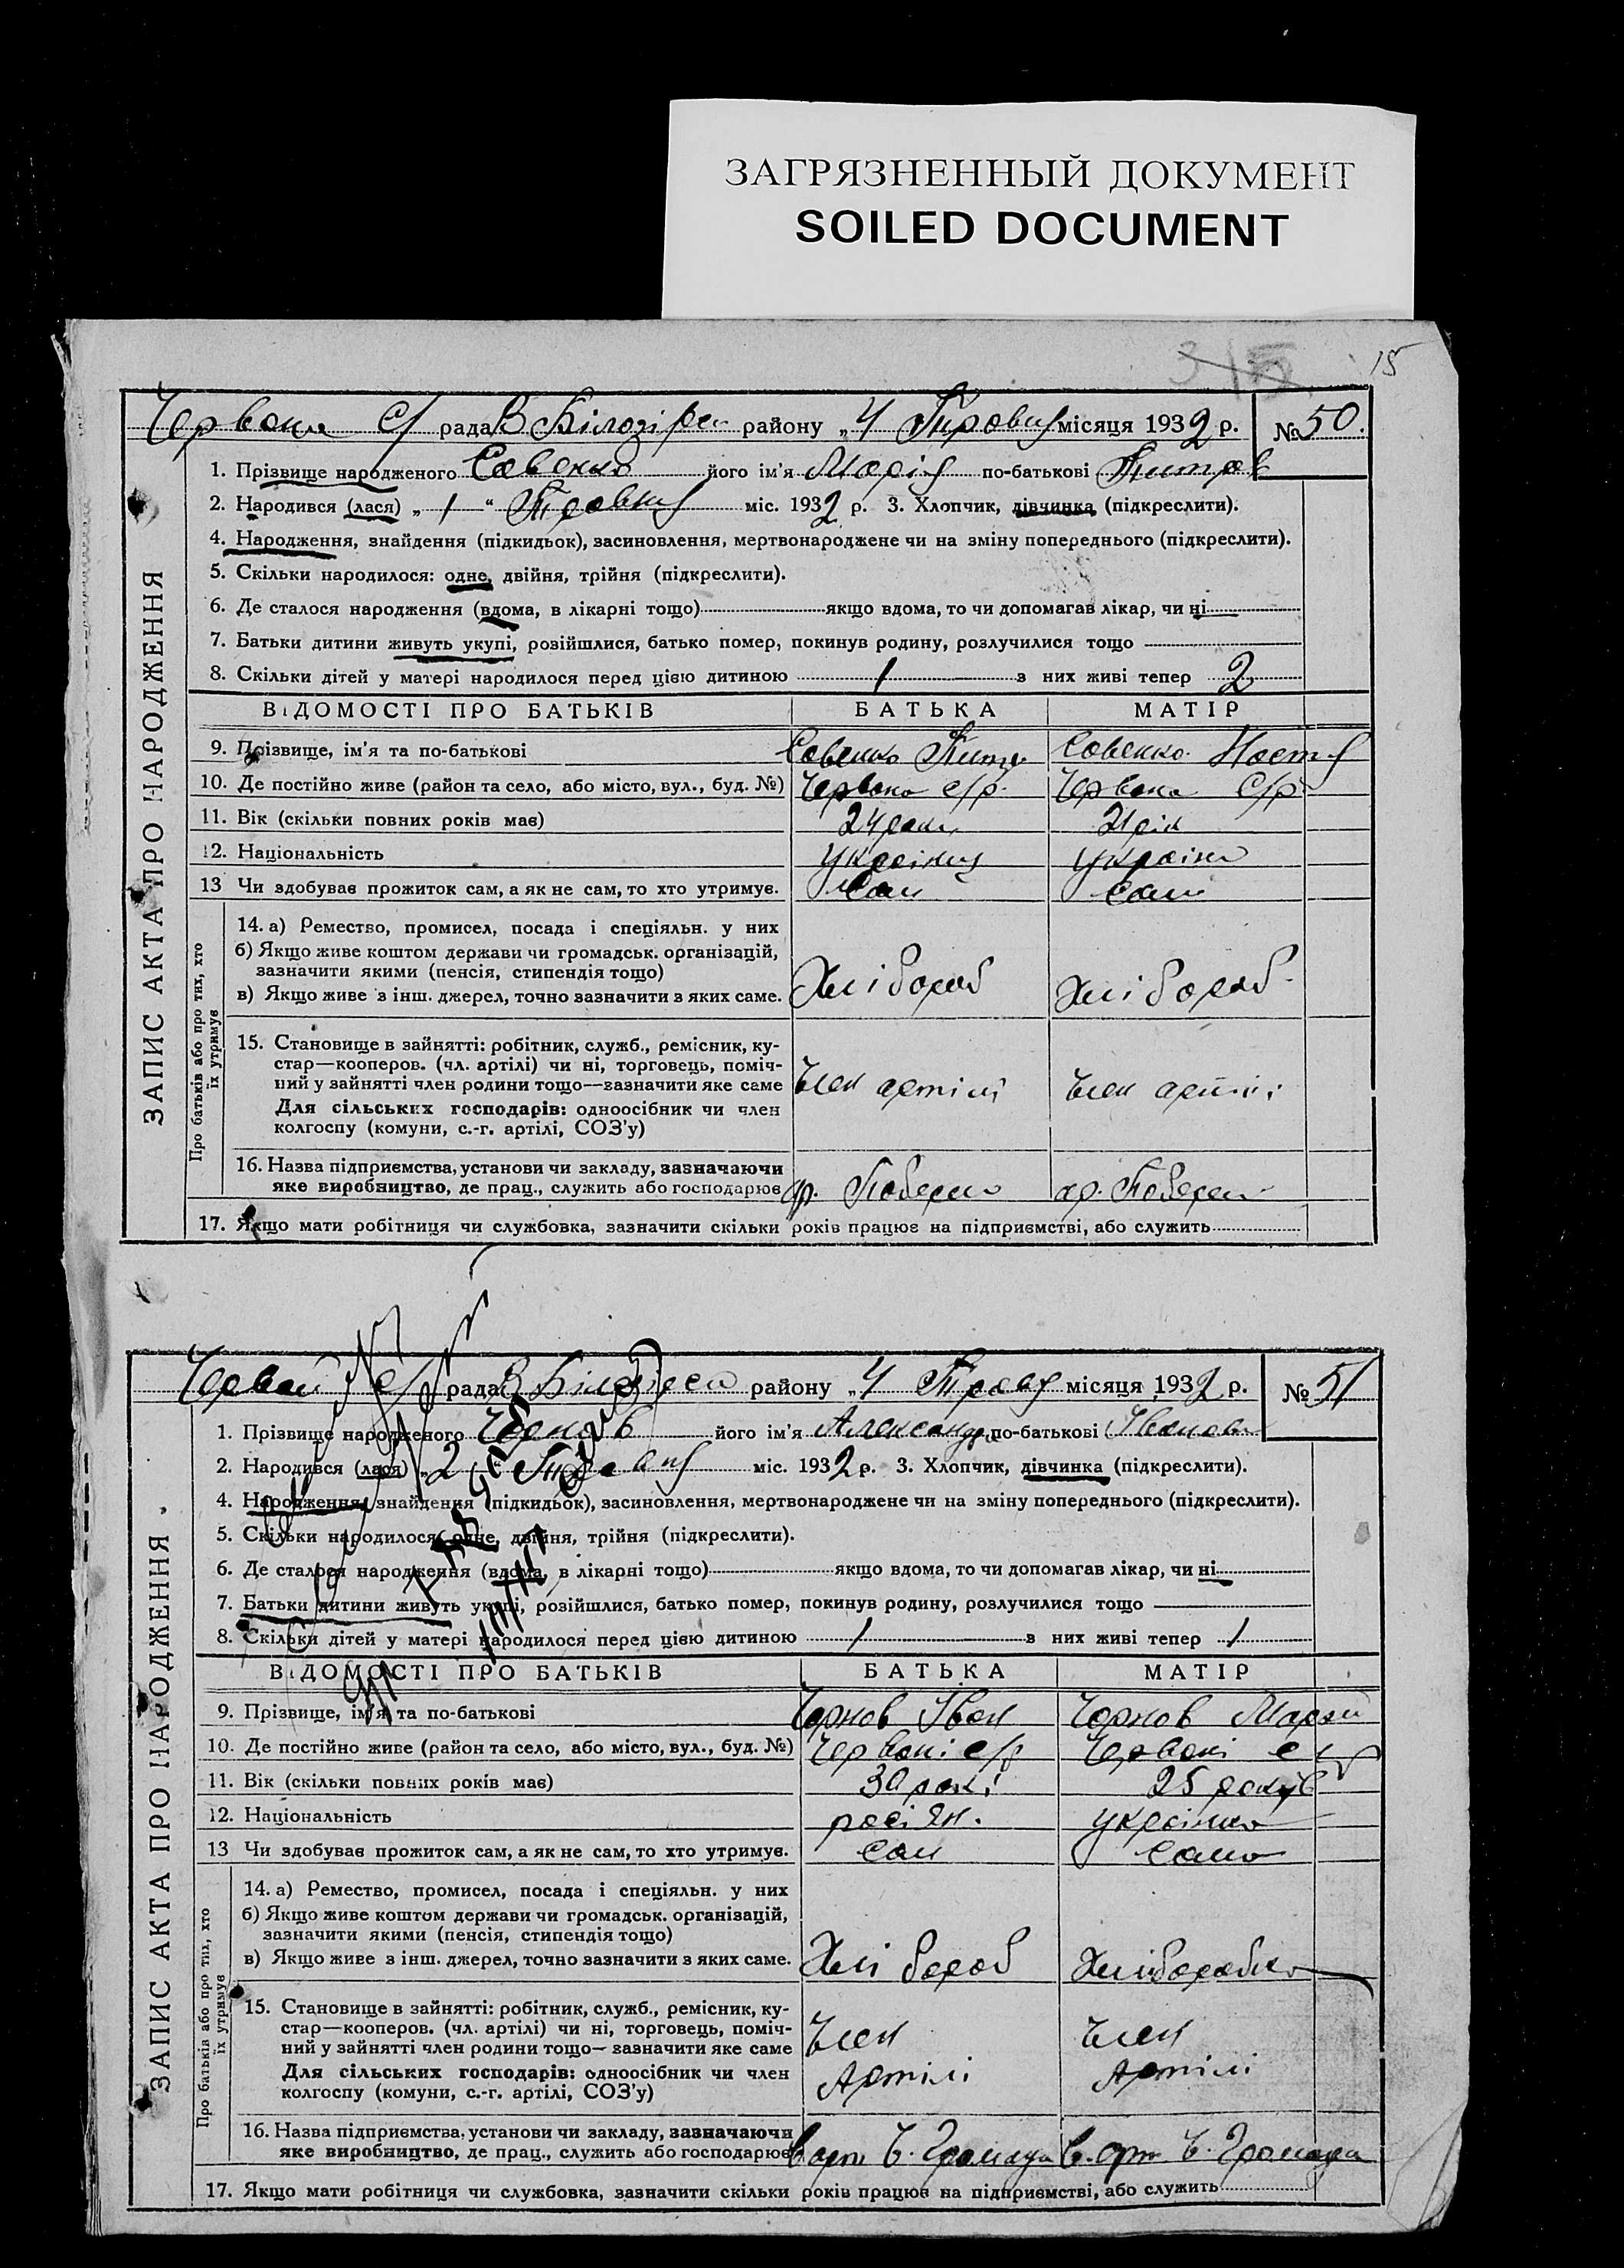 ЗАГРЯЗНЕННЫЙ ДОКУМЕНТ
SOILED DOCUMENT
15
ЗАПИС АКТА ПРО НАРОДЖЕННЯ
с/ рада В Білозірки району „4 Травня місяця 1932 р. № 50.
1. Прізвище народженого Савенко його ім'я Марія по-батькові
2. Народився (лася) „1“ Травня міс. 1932 р. 3. Хлопчик, дівчинка (підкреслити).
4. Народження, знайдення (підкидьок), засиновлення, мертвонароджене чи на зміну попереднього (підкреслити).
5. Скільки народилося: одне, двійня, трійня (підкреслити).
6. Де сталося народження (вдома, в лікарні тощо) якщо вдома, то чи допомагав лікар, чи ні
7. Батьки дитини живуть укупі, розійшлися, батько помер, покинув родину, розлучилися тощо
8. Скільки дітей у матері народилося перед цією дитиною 1 з них живі тепер 2
ВІДОМОСТІ ПРО БАТЬКІВ БАТЬКА МАТІР
9. Прізвище, ім'я та по-батькові Савенко Савенко Настя
10. Де постійно живе (район та село, або місто, вул., буд. №) Червона с/р. Червона с/р
11. Вік (скільки повних років має) 24 роки 21 рік
12. Національність українець українка
13 Чи здобуває прожиток сам, а як не сам, то хто утримує. Сам Сама
Про батьків або про тих, хто їх утримує
14. а) Ремество, промисел, посада і спеціяльн. у них
б) Якщо живе коштом держави чи громадськ. організацій,
зазначити якими (пенсія, стипендія тощо)
в) Якщо живе з інш. джерел, точно зазначити з яких саме. Хлібороб Хлібороб
15. Становище в зайнятті: робітник, служб., ремісник, ку-
стар—кооперов. (чл. артілі) чи ні, торговець, поміч-
ний у зайнятті член родини тощо—зазначити яке саме Член артілі Член артілі
Для сільських господарів: одноосібник чи член
колгоспу (комуни, с.-г. артілі, СОЗ'у)
16. Назва підприємства, установи чи закладу, зазначаючи
яке виробництво, де прац., служить або господарює
17. Якщо мати робітниця чи службовка, зазначити скільки років працює на підприємстві, або служить
ЗАПИС АКТА ПРО НАРОДЖЕННЯ
с/ рада В Білозірки району „4 Травня місяця 1932 р. № 51
1. Прізвище народженого Чорнов його ім'я Александра по-батькові Иванов
2. Народився (лася) „2“ Травня міс. 1932 р. 3. Хлопчик, дівчинка (підкреслити).
4. Народження, знайдення (підкидьок), засиновлення, мертвонароджене чи на зміну попереднього (підкреслити).
5. Скільки народилося: одне, двійня, трійня (підкреслити).
6. Де сталося народження (вдома, в лікарні тощо) якщо вдома, то чи допомагав лікар, чи ні
7. Батьки дитини живуть укупі, розійшлися, батько помер, покинув родину, розлучилися тощо
8. Скільки дітей у матері народилося перед цією дитиною 1 з них живі тепер 1
ВІДОМОСТІ ПРО БАТЬКІВ БАТЬКА МАТІР
9. Прізвище, ім'я та по-батькові Чорнов Іван Чорнов
10. Де постійно живе (район та село, або місто, вул., буд. №) Червоні с/р Червоні с/р
11. Вік (скільки повних років має) 30 років 25 років
12. Національність росіян. українка
13 Чи здобуває прожиток сам, а як не сам, то хто утримує. Сам Сама
Про батьків або про тих, хто їх утримує
14. а) Ремество, промисел, посада і спеціяльн. у них
б) Якщо живе коштом держави чи громадськ. організацій,
зазначити якими (пенсія, стипендія тощо)
в) Якщо живе з інш. джерел, точно зазначити з яких саме. Хлібороб Хліборобка
15. Становище в зайнятті: робітник, служб., ремісник, ку-
стар—кооперов. (чл. артілі) чи ні, торговець, поміч-
ний у зайнятті член родини тощо—зазначити яке саме Член Член
Для сільських господарів: одноосібник чи член
колгоспу (комуни, с.-г. артілі, СОЗ'у) Артілі Артілі
16. Назва підприємства, установи чи закладу, зазначаючи
яке виробництво, де прац., служить або господарює С. арт. Ч. Громада С. арт Ч. Громада
17. Якщо мати робітниця чи службовка, зазначити скільки років працює на підприємстві, або служить